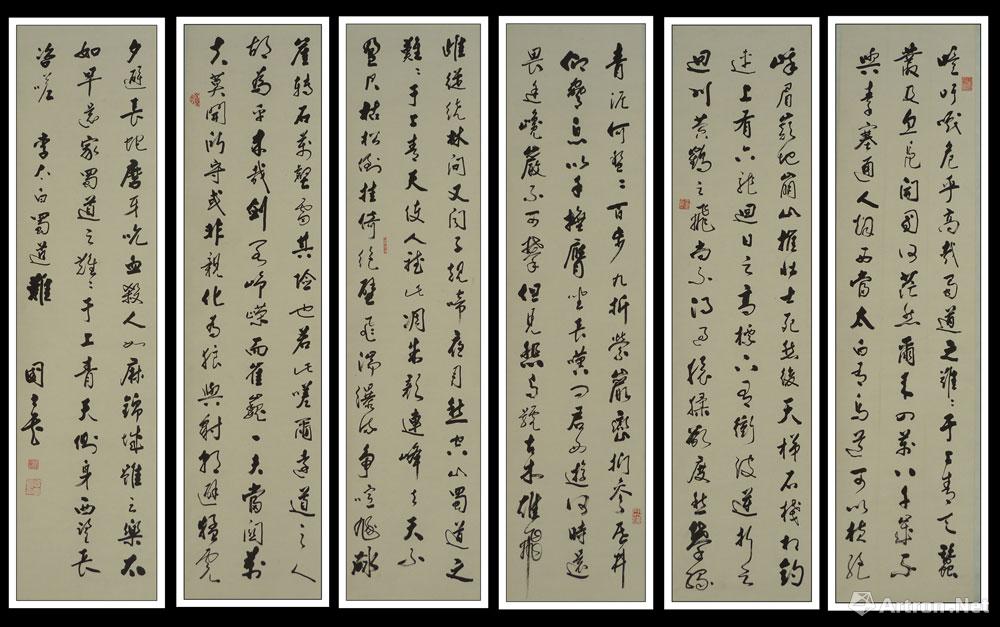 噫吁嚱危乎高哉蜀道之難々于上青天蠶
叢及魚鳧開國何茫然爾來四萬八千歲不
與秦塞通人烟西當太白有鳥道可以橫絕
峨眉巔地崩山摧壯士死然後天梯石棧相鈎
連上有六龍迴日之高標下有衝波逆折之
迴川黃鶴之飛尚不得過猿猱欲度愁攀緣
青泥何盤々百步九折縈巖巒捫參歷井
仰脅息以手撫膺坐長嘆問君西遊何時還
畏途巉巖不可攀但見悲鳥號古木雄飛
雌從繞林間又聞子規啼夜月愁空山蜀道之
難々于上青天使人聽此凋朱顏連峰去天不
盈尺枯松倒挂倚絕壁飛湍瀑流爭喧豗砯
崖轉石萬壑雷其險也若此嗟爾遠道之人
胡為乎來哉劍閣崢嶸而崔嵬一夫當關萬
夫莫開所守或非親化為狼與豺朝避猛虎
夕避長蛇磨牙吮血殺人如麻錦城雖云樂不
如早還家蜀道之難々于上青天側身西望長
咨嗟 李太白蜀道難
Artron.Net